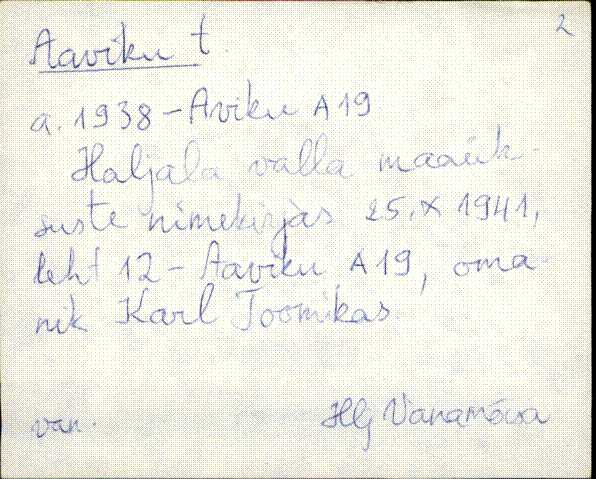 2
Aaviku t.
a. 1938 - Aviku A19
Haljala valla maaük-
suste nimekirjas 25. X 1941,
leht 12 - Aaviku A19, oma-
nik Karl Toomikas
van. Hlj Vanamõisa